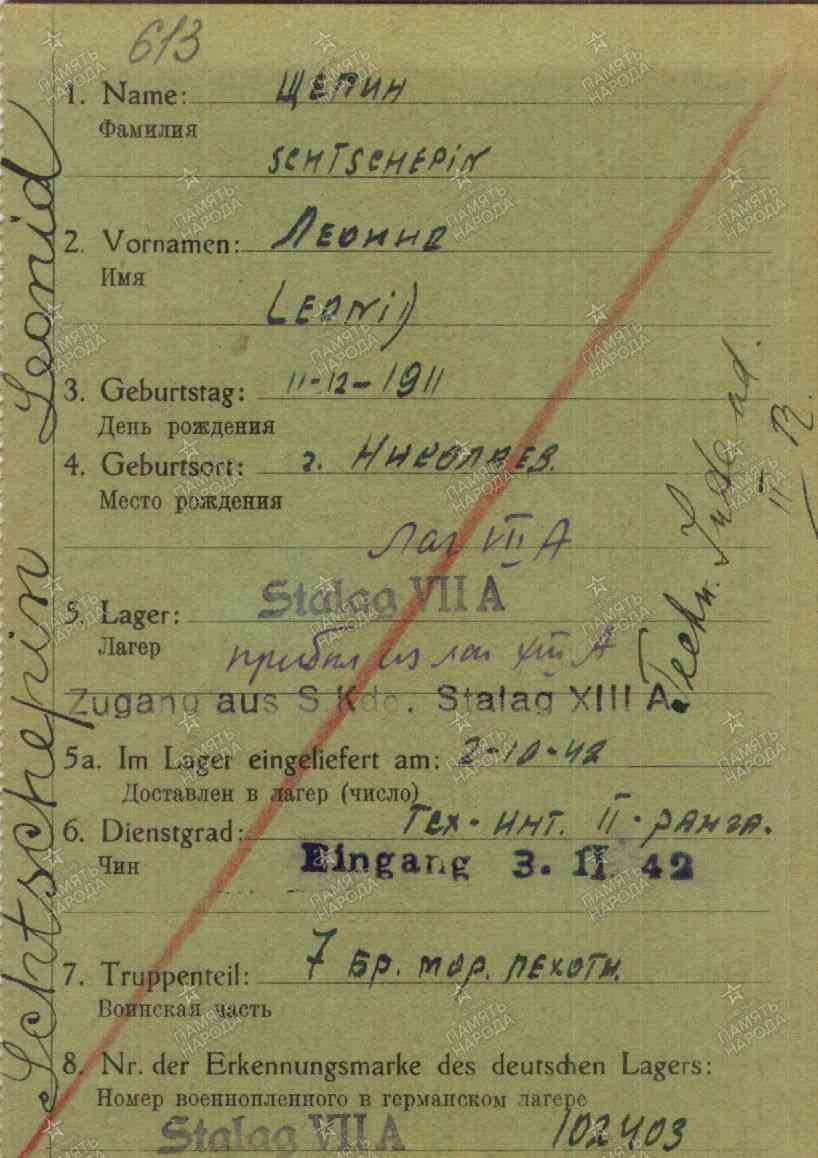 613
1. Name: Щепин
Фамилия
SCHTSCHEPIN
2. Vornamen: Леонид
Имя
(LEONID)
3. Geburtstag: 11-12-1911
День рождения
4. Geburtsort: г. Николаев.
Место рождения
Лаг VII А
Stalag VII A
5. Lager:
Лагер
прибыл из лаг XIII А
Zugang aus S Kdo. Stalag XIII A.
5a. Im Lager eingeliefert am: 2-10-42
Доставлен в лагер (число)
6. Dienstgrad: Тех-инт. II-ранга.
Чин
Eingang 3. II. 42
7. Truppenteil: 7 бр. мор. пехоты.
Воинская часть
8. Nr. der Erkennungsmarke des deutschen Lagers:
Номер военнопленного в германском лагере
Stalag VII A 102403
Schtschepin Leonid
Techn.
II R.
ПАМЯТЬ НАРОДА